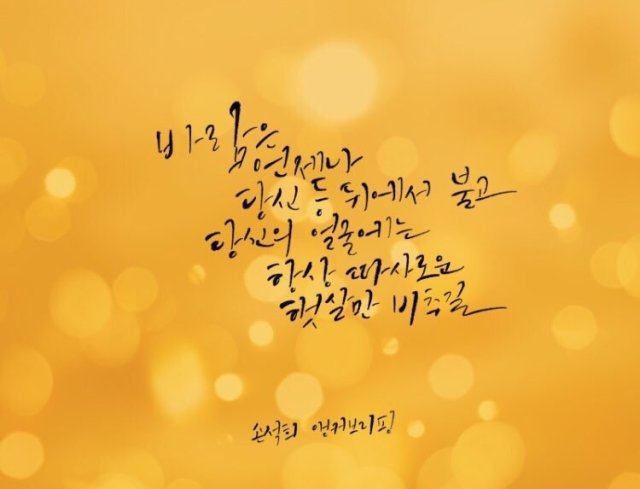 바람은
언제나
당신 등 뒤에서 불고
당신의 얼굴에는
항상 따사로운
햇살만 비추길
손석희 앵커브리핑